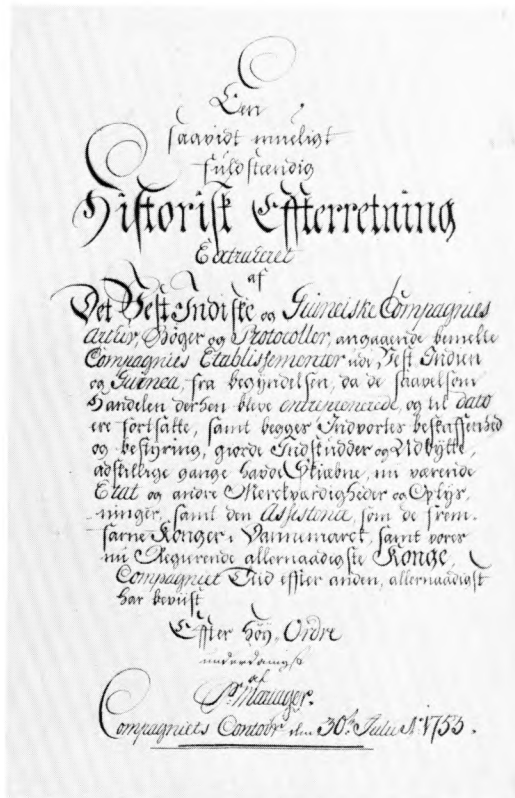 Een
saavidt mueligt
fuldstændig
Historisk Effterretning
Extraheret
af
Det Vest Indiske og Guineiske Compagnies
Acter, Bøger og Protocoller, angaaende bemelte
Compagnies Etablissementer udi Vest Indien
og Guinea, fra begyndelsen, da de saavelsom
Handelen derhen bleve entreprenerede, og til dato
ere fortsatte, samt begges Indvortes beskaffenhed
og bestyring, giorde Indskudder og Udbytte,
adskillige gange havde Skiæbne, nu værende
Etat og andre Merckværdigheder og Oplys,,
,,ninger, samt den Assistence, som de frem,,
,,farne Konger i Dannemarck, samt vores
nu Regierende allernaadigste Konge,
Compagniet Tiid effter anden, allernaadigst
har beviist
Effter høy Ordre
underdanigst
af
Mariager.
Compagniets Contoir den 30te Julii A° 1753.